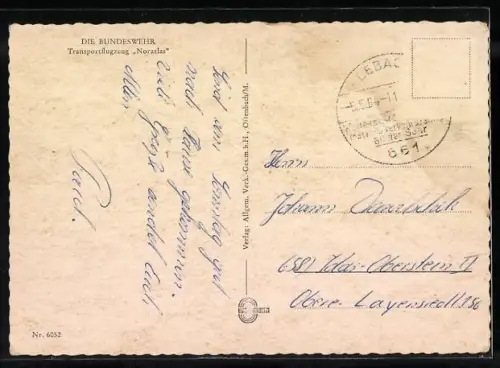 DIE BUNDESWEHR
Transportflugzeug „Noratlas"
Sind am Sonntag gut
nach Hause gekommen.
Viele Grüße sendet Euch
Allen
Verlag: Allgem. Verk.-Ges.m.b.H., Offenbach/M.
LEBACH
-5.5.64-11
661
Herrn
Johann
6581 Idar-Oberstein II
Obere Layensiedl.
Nr. 6052